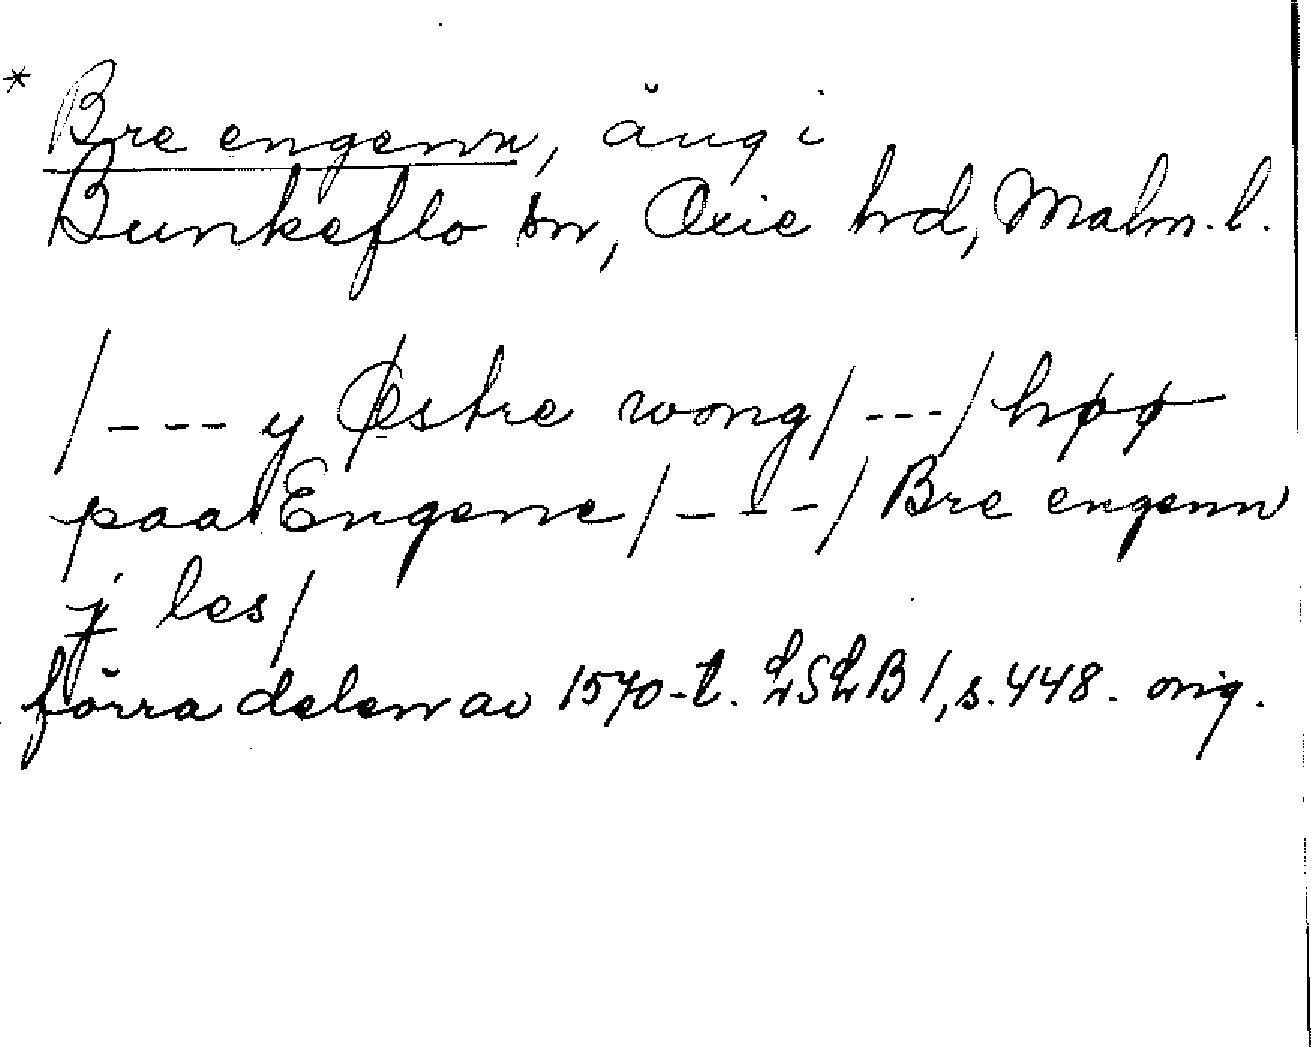 * Bre engenn, äng i
Bunkeflo sn, Oxie hrd, Malm. l.
/--- y Østre wong/---/ høø
paa Engene/---/ Bre engenn
j les/
förra delen av 1570-t. LSLB 1, s. 448. orig.